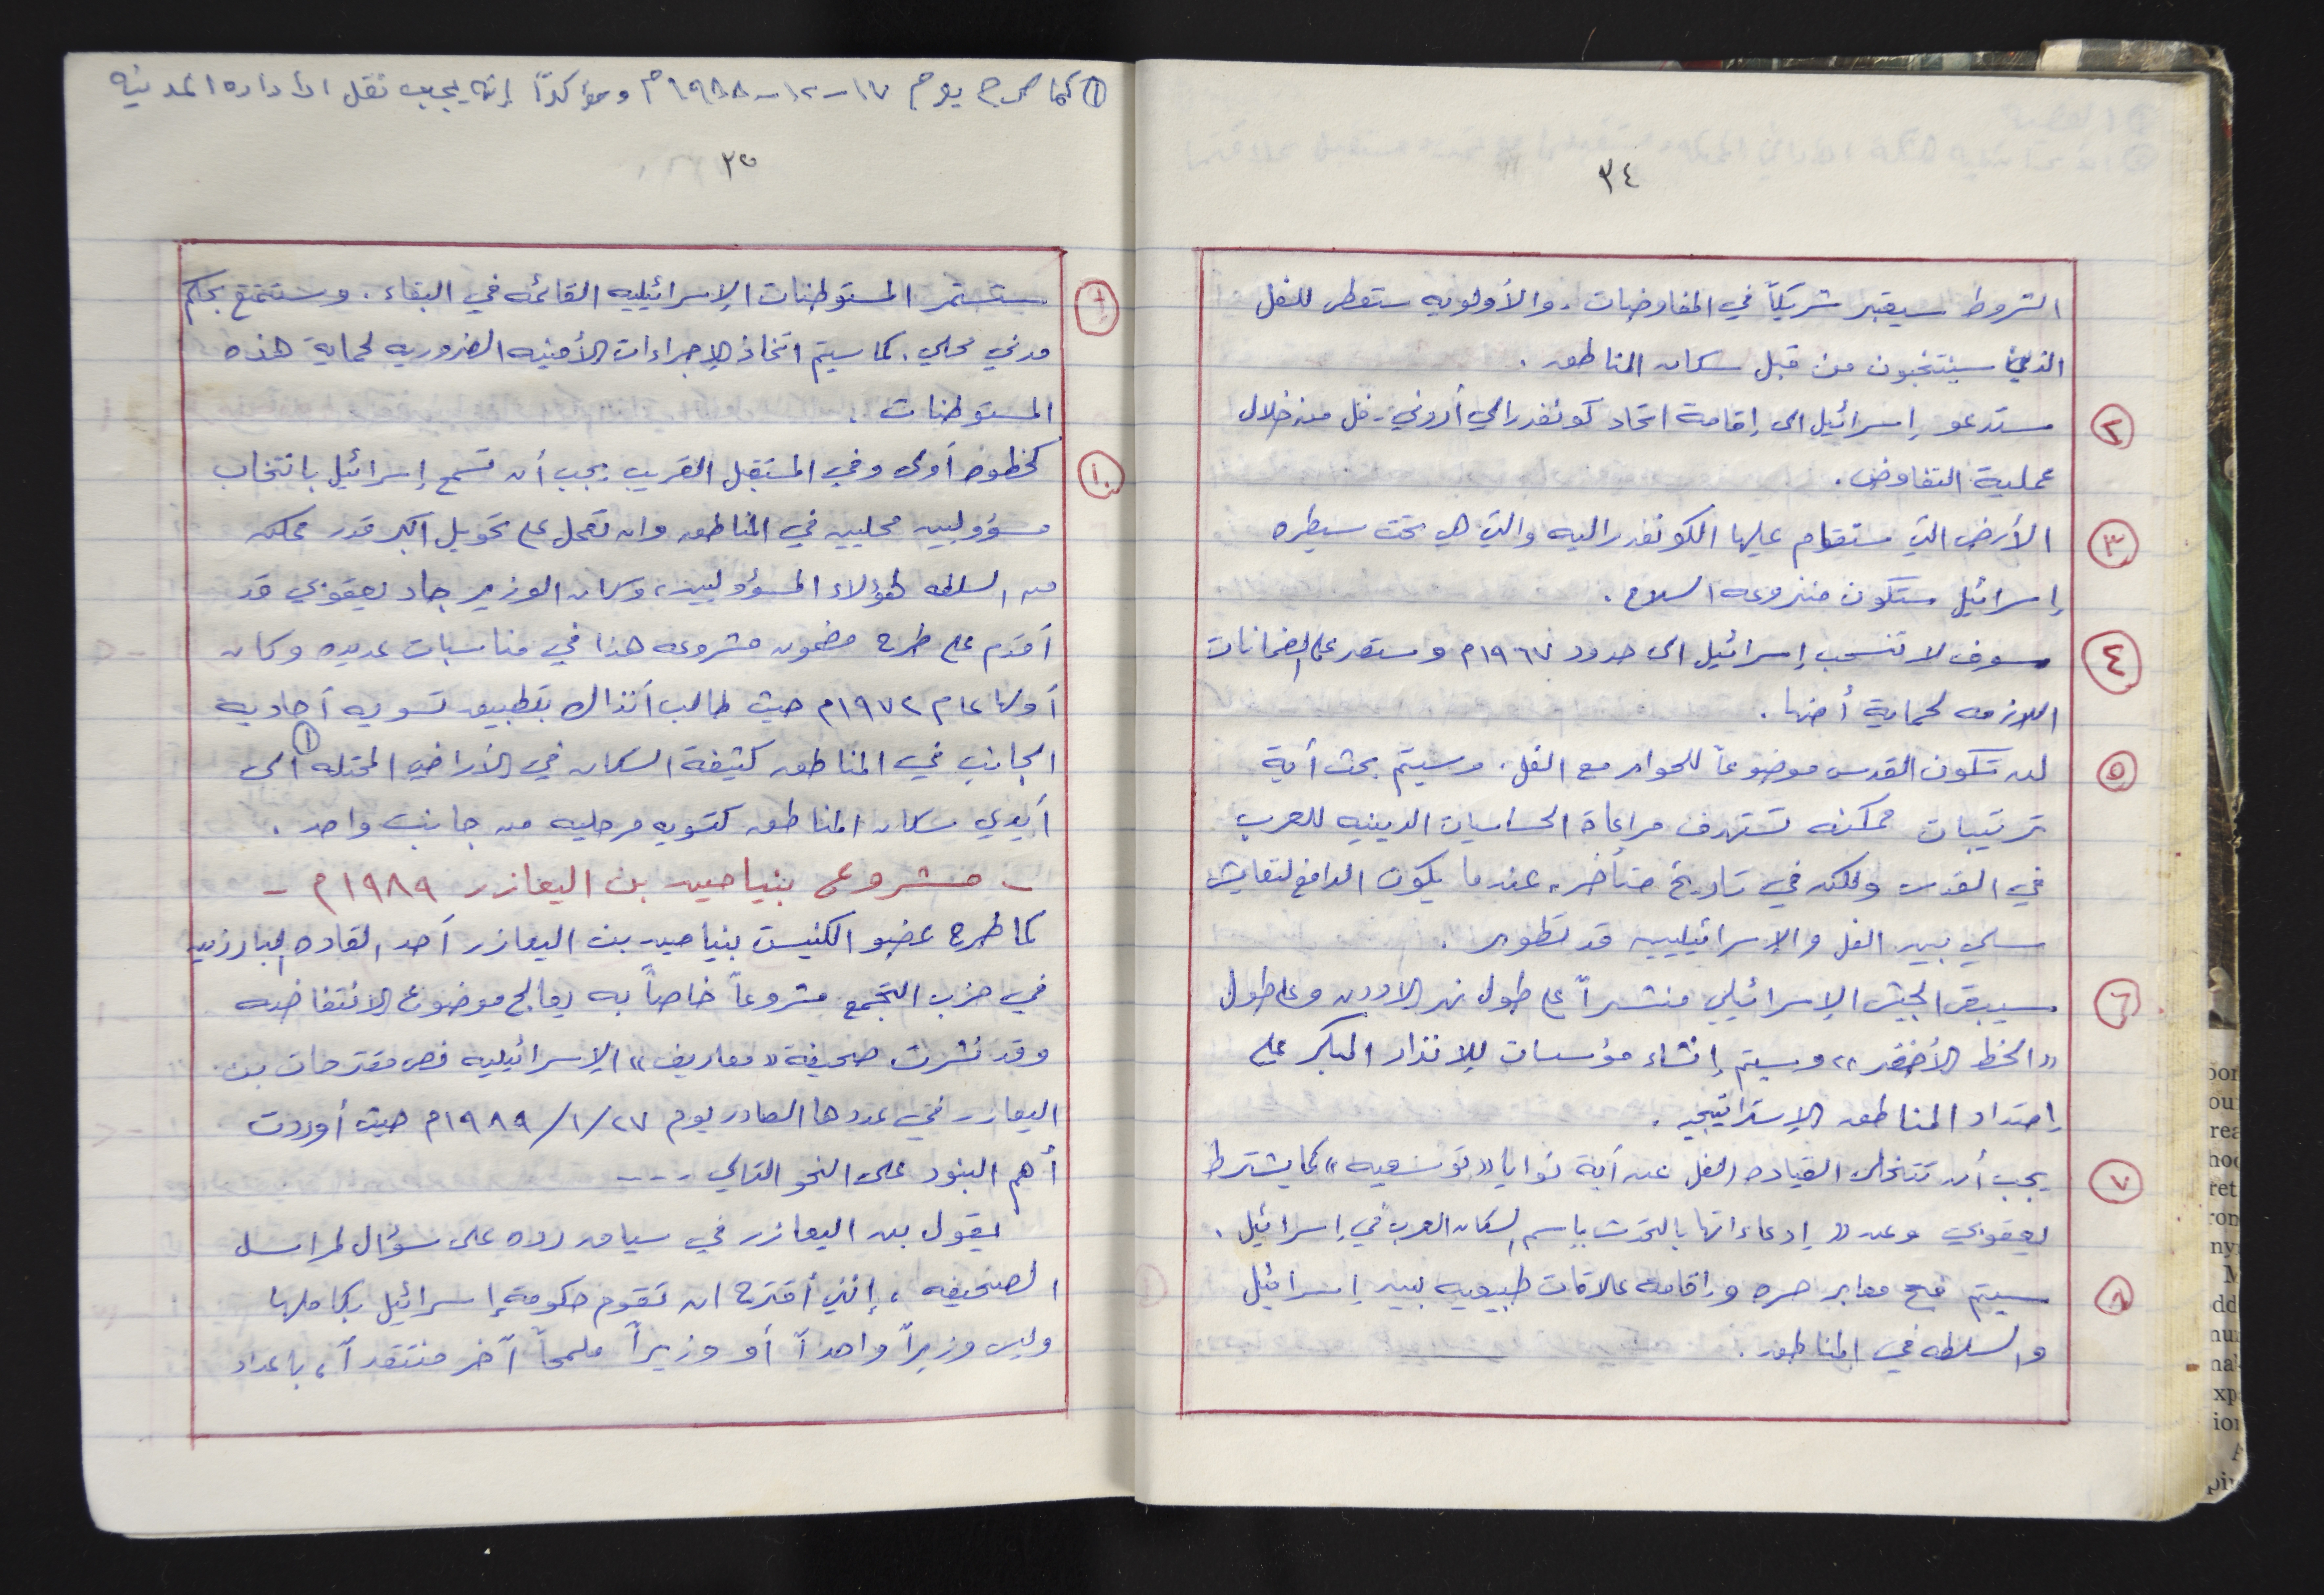 ٣٤
الشروط سيعتبر شريكاً في المفاوضات. والأولويه ستعطى للفل
الذين سينتخبون من قبل سكان المناطق.
٢ ستدعو إسرائيل الى إقامة اتحاد كونفدرالي أردني - فل من خلال
عملية التفاوض.
٣ الأرض التي ستقام عليها الكونفدراليه والتي هي تحت سيطره
إسرائيل ستكون منزوعه السلاح.
٤ سوف لا تنسحب إسرائيل الى حدود ١٩٦٧م وستصر على الضمانات
اللازمه لحماية أمنها.
٥ لن تكون القدس موضوعاً للحوار مع الفل. وسيتم بحث أية
ترتيبات ممكنه تستهدف مراعاة الحساسيات الدينيه للعرب
في القدس ولكن في تاريخ متأخر، عندما يكون الدافع لتعايش
سلمي بين الفل والإسرائيليين قد تطور.
٦ سيبقى الجيش الإسرائيلي منتشراً على طول نهر الاردن وعلى طول
«الخط الأخضر» وسيتم إنشاء مؤسسات للإنذار المبكر على
إمتداد المناطق الإستراتيجيه.
٧ يجب أن تتخلى القياده الفل عن أية نوايا «توسعيه» كما يشترط
يعقوبي وعن «إدعاءاتها بالتحدث باسم السكان العرب في إسرائيل.
٨ سيتم فتح معابر حره وإقامة علاقات طبيعيه بين إسرائيل
والسلطه في المناطق.
① كما صرح يوم ١٧-١٢-١٩٨٨م ومؤكداً إنه يجب نقل الأداره المدنيه
٣٥
٩ ستستمر المستوطنات الإسرائيليه القائمه في البقاء. وستتمتع بحكم
مدني محلي. كما سيتم اتخاذ الإجراءات الأمنيه الضروريه لحماية هذه
المستوطنات.
١٠ كخطوه أولى وفي المستقبل القريب يجب أن تسمح إسرائيل بانتخاب
مسؤوليين محليين في المناطق وان تعمل على تحويل اكبر قدر ممكن
من السلطه لهؤلاء المسؤوليين، وكان الوزير جاد يعقوبي قد
أقدم على طرح مضمون مشروعه هذا في مناسبات عديده وكان
أولها عام ١٩٧٢م حيث طالب آنذاك بتطبيق تسويه أحاديه
الجانب في المناطق كثيفة السكان في الأراضي المحتله ① الى
أيدي سكان المناطق كتسويه مرحليه من جانب واحد.
- مشروع بنيامين بن اليعازر ١٩٨٩م -
كما طرح عضو الكنيست بنيامين بن اليعازر أحد القاده البارزين
في حزب التجمع مشروعاً خاصاً به يعالج موضوع الانتفاضه
وقد نشرت صحيفة «معاريف» الإسرائيليه نص مقترحات بن
اليعازر في عددها الصادر يوم ٢٧/١/١٩٨٩م حيث أوردت
أهم البنود على النحو التالي ---
يقول بن اليعازر في سياق رده على سؤال لمراسل
الصحيفه، إنني أقترح ان تقوم حكومة إسرائيل بكاملها
وليس وزيراً واحداً أو وزيراً ملمحاً آخر منتقداً، باعداد